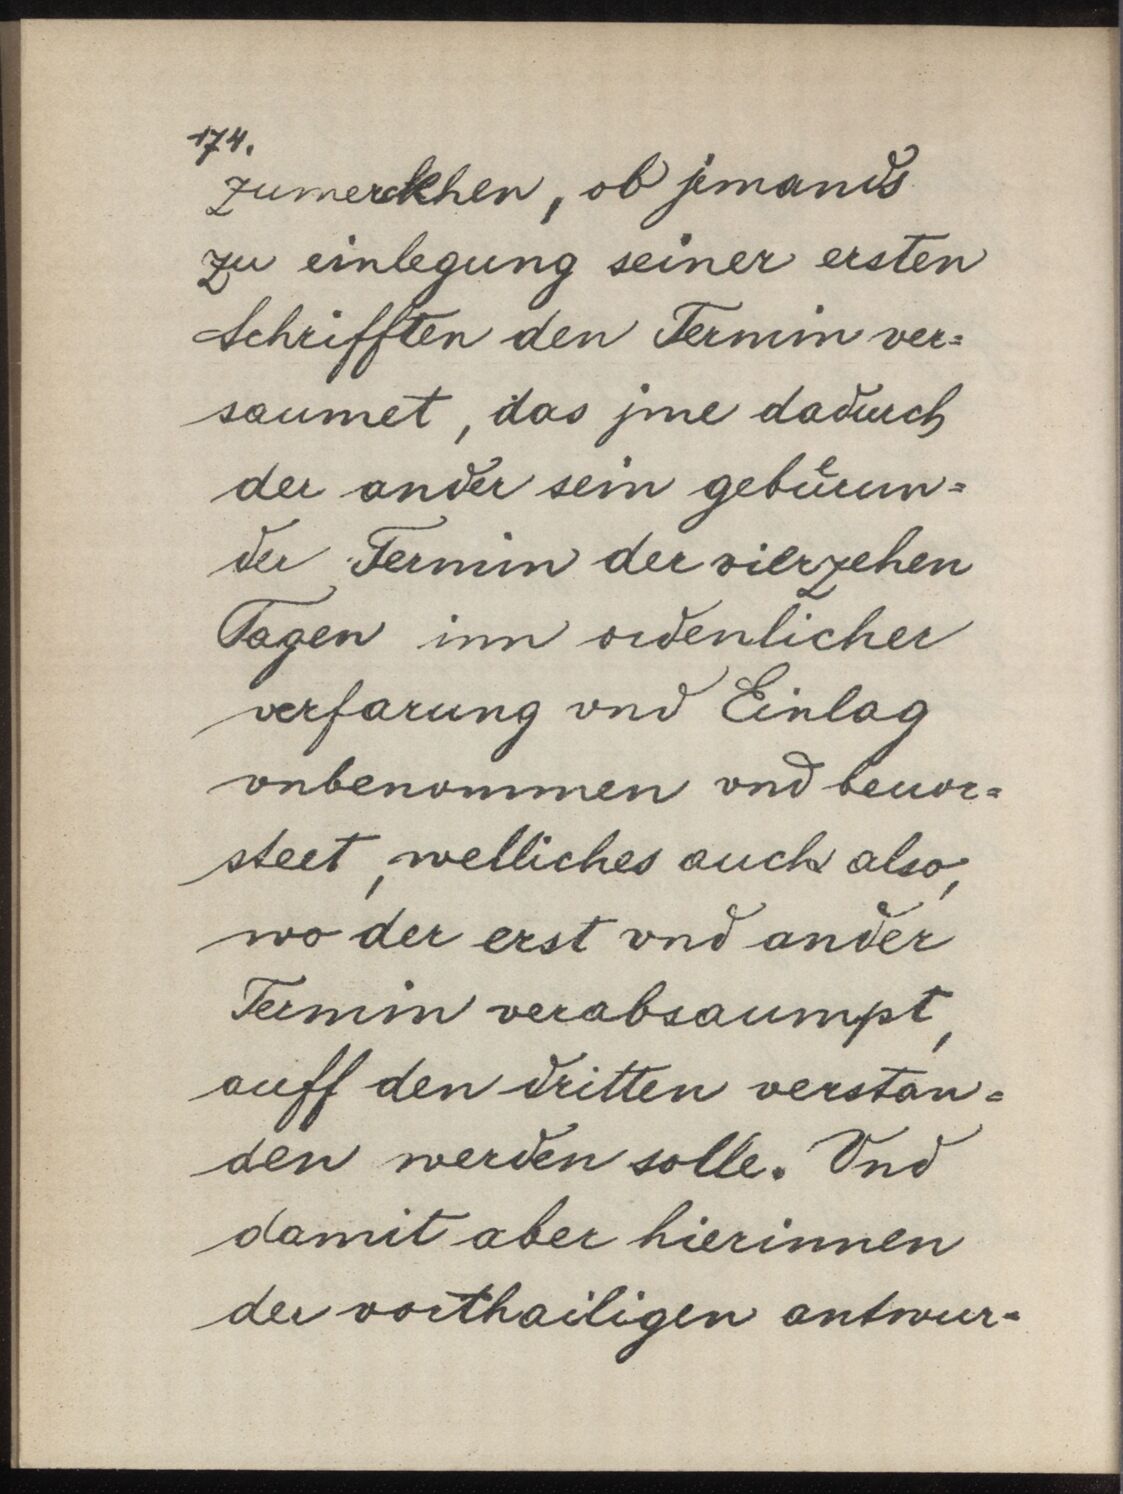 174.
zumerckhen, ob jemands
zu einlegung seiner ersten
Schrifften den Termin ver=
saumet, das jme dadurch
der ander sein gebürun=
der Termin der vierzehen
Tagen inn ordenlicher
verfarung vnd Einlag
vnbenommen vnd beuor=
steet, welliches auch also,
wo der erst vnd ander
Termin verabsaumpt,
auff den dritten verstan=
den werden solle. Vnd
damit aber hierinnen
der vorthailigen antwur=